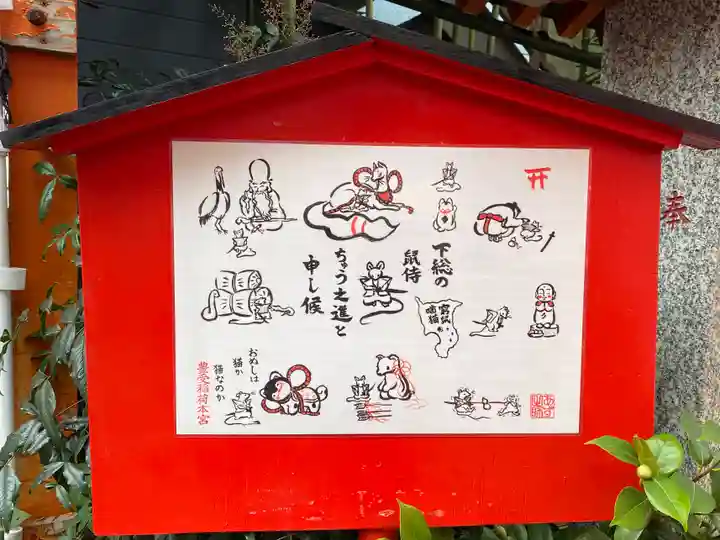 下総の
鼠侍
ちゅう之進と
申し候
おぬしは
猫か
猫なのか
豊受稲荷本宮
奉